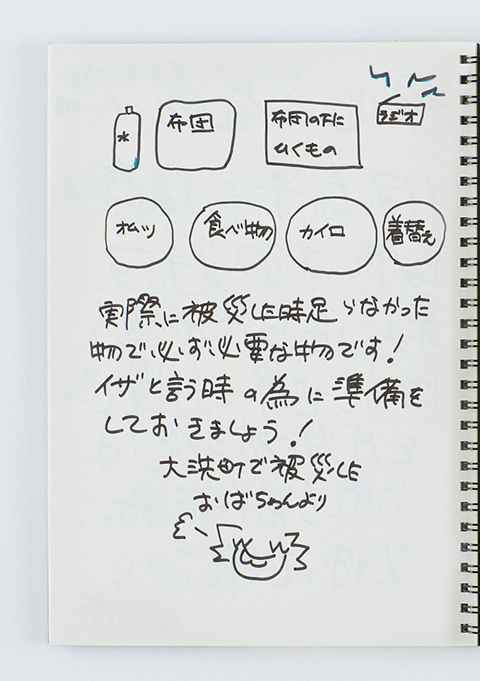 水
布団
布団の下に
ひくもの
ラジオ
オムツ
食べ物
カイロ
着替え
実際に被災した時足らなかった
物で必ず必要な物です！
イザと言う時の為に準備を
しておきましょう！
大洗町で被災した
おばちゃんより